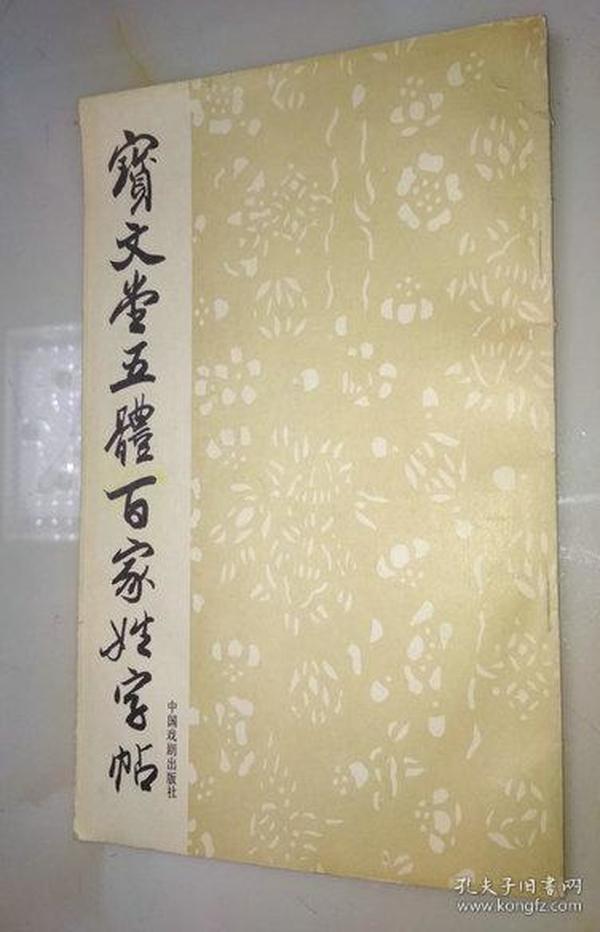 寳文堂五體百家姓字帖
中国戏剧出版社
孔夫子旧書网
www.kongfz.com